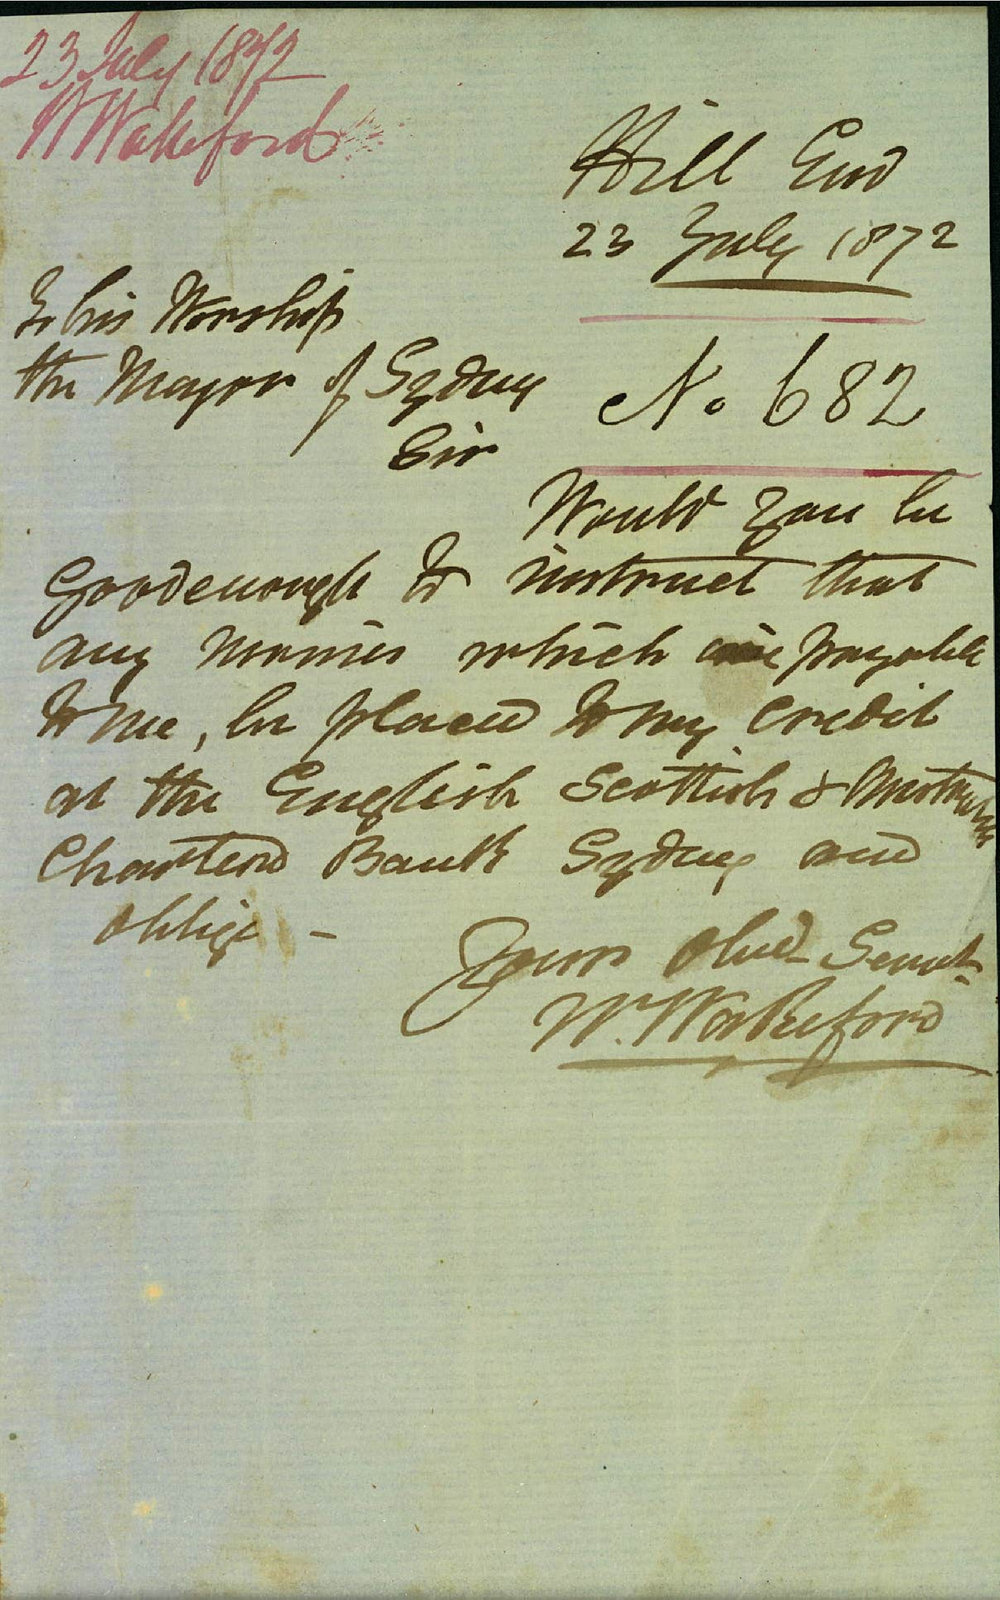 23 July 1872
W Wakeford
Hill End
23 July 1872
To his Worship
the Mayor of Sydney
No 682
Sir
Would you be
Good enough to instruct that
any monies which are payable
to me, be placed to my credit
at the English Scottish & Australian
Chartered Bank Sydney and
oblige -
Yours Obed Servat
W. Wakeford